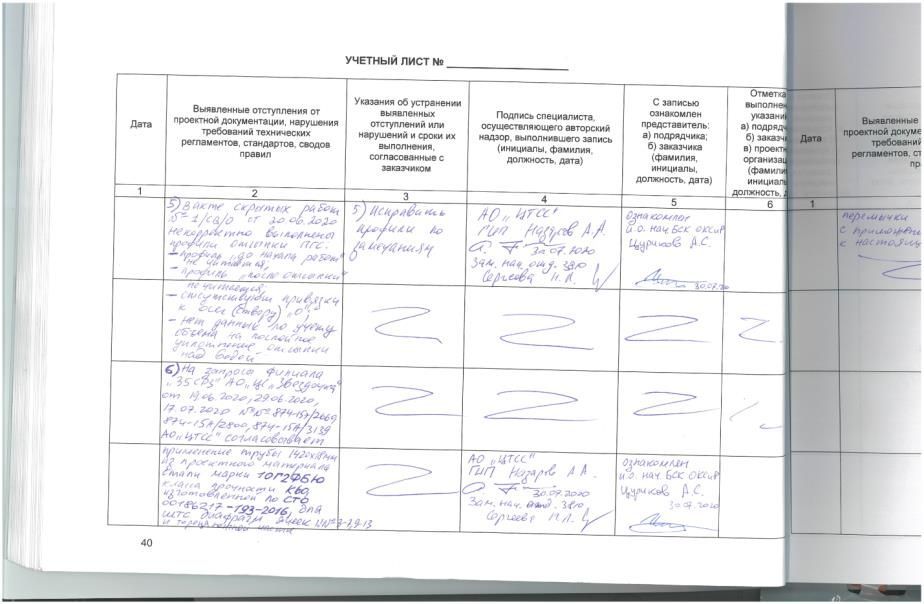 УЧЕТНЫЙ ЛИСТ №
Дата
Выявленные отступления от
проектной документации, нарушения
требований технических
регламентов, стандартов, сводов
правил
Указания об устранении
выявленных
отступлений или
нарушений и сроки их
выполнения,
согласованные с
заказчиком
Подпись специалиста,
осуществляющего авторский
надзор, выполнившего запись
(инициалы, фамилия,
должность, дата)
С записью
ознакомлен
представитель:
а) подрядчика;
б) заказчика
(фамилия,
инициалы,
должность, дата)
Отметка
выполнен
указани
а) подрядч
б) заказч
в) проектн
организац
(фамили
инициаль
должность, д
1
2
3
4
5
6
5) В акте скрытых работ
№ 1/СВ/О от 20.06.2020
некорректно выполнены
профили отсыпки ПГС:
- профиль "до начала работ"
не читается;
- профиль "после отсыпки"
5) Исправить
профили по
замечаниям
АО "ЦТСС"
ГИП Назаров А.А.
30.07.2020
Зам. нач. отд. 380
Сергеева Н.Л.
ознакомлен
и.о. нач. БСК ОКСиР
Цуриков А.С.
30.07.20
не читается;
- отсутствуют привязки
к оси (створу) "О";
- нет данных по учету
объема на послойное
уплотнение отсыпки
над водой
6) На запросы филиала
"35 СРЗ" АО "ЦС "Звездочка"
от 19.06.2020, 29.06.2020,
17.07.2020 №№ 874-15А/2669
874-15А/2800, 874-15А/3139
АО "ЦТСС" согласовывает
применение трубы 1420х18мм
из проектного материала
стали марки 10Г2ФБЮ
класса прочности К60,
изготовленной по СТО
00186217-193-2016, для
шпс диафрагм ячеек №№ 3-7,9-13
и торцевой части
АО "ЦТСС"
ГИП Назаров А.А.
30.07.2020
Зам. нач. отд. 380
Сергеева Н.Л.
ознакомлен
и.о. нач. БСК ОКСиР
Цуриков А.С.
30.07.2020
40
Дата
Выявленные
проектной докуме
требований
регламентов, ст
пра
1
перемычки
с приложен
к настоящ